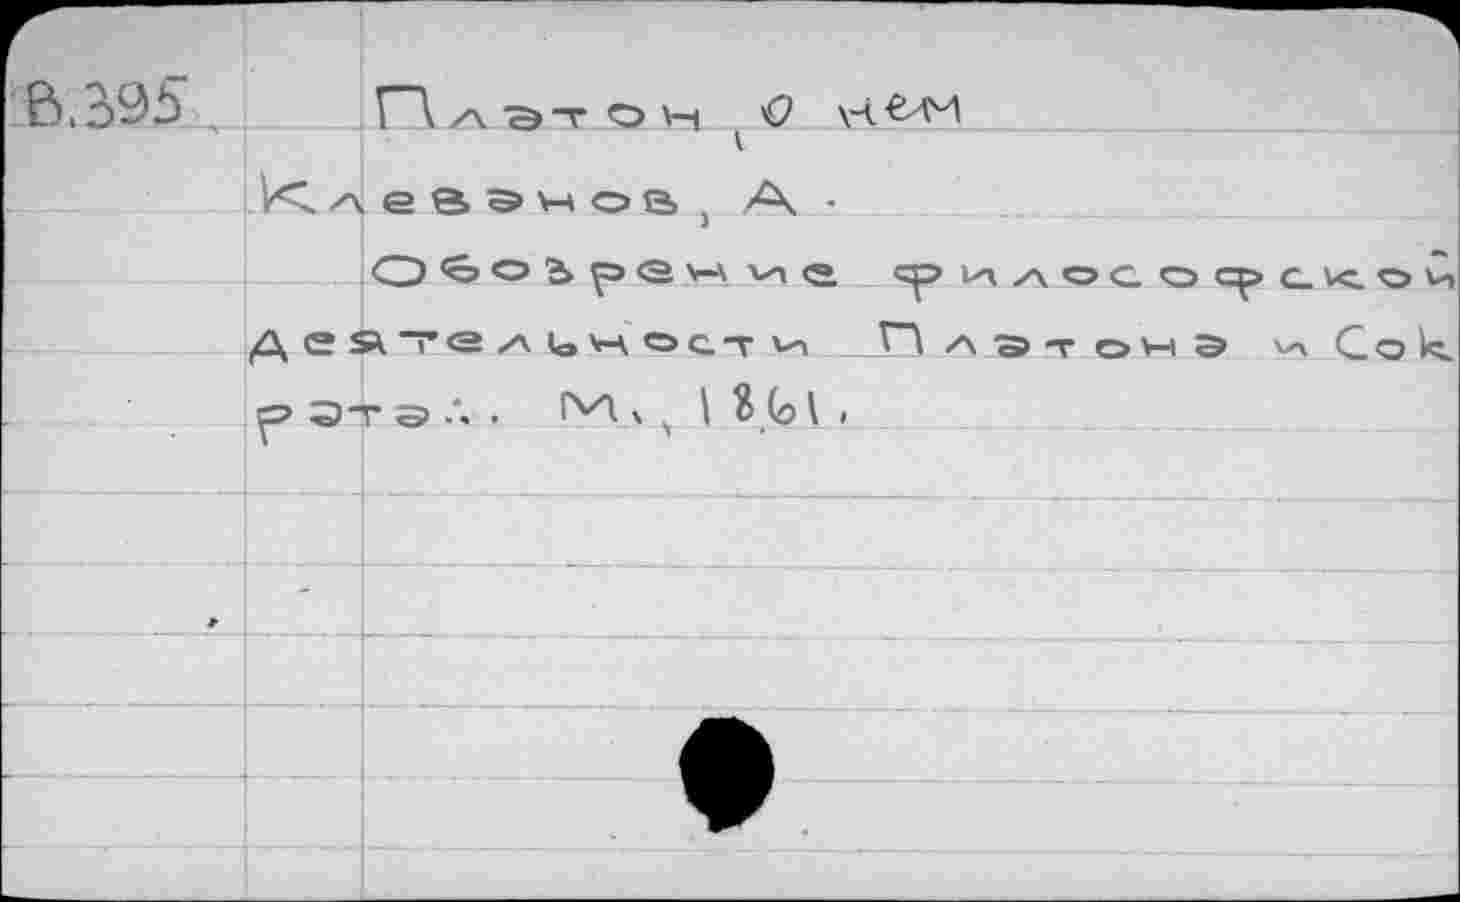 В.395 Платон, о нем
Клеванов, А.
Обозрение философской
деятельности Платона и Сок
рата.. М., 1861.